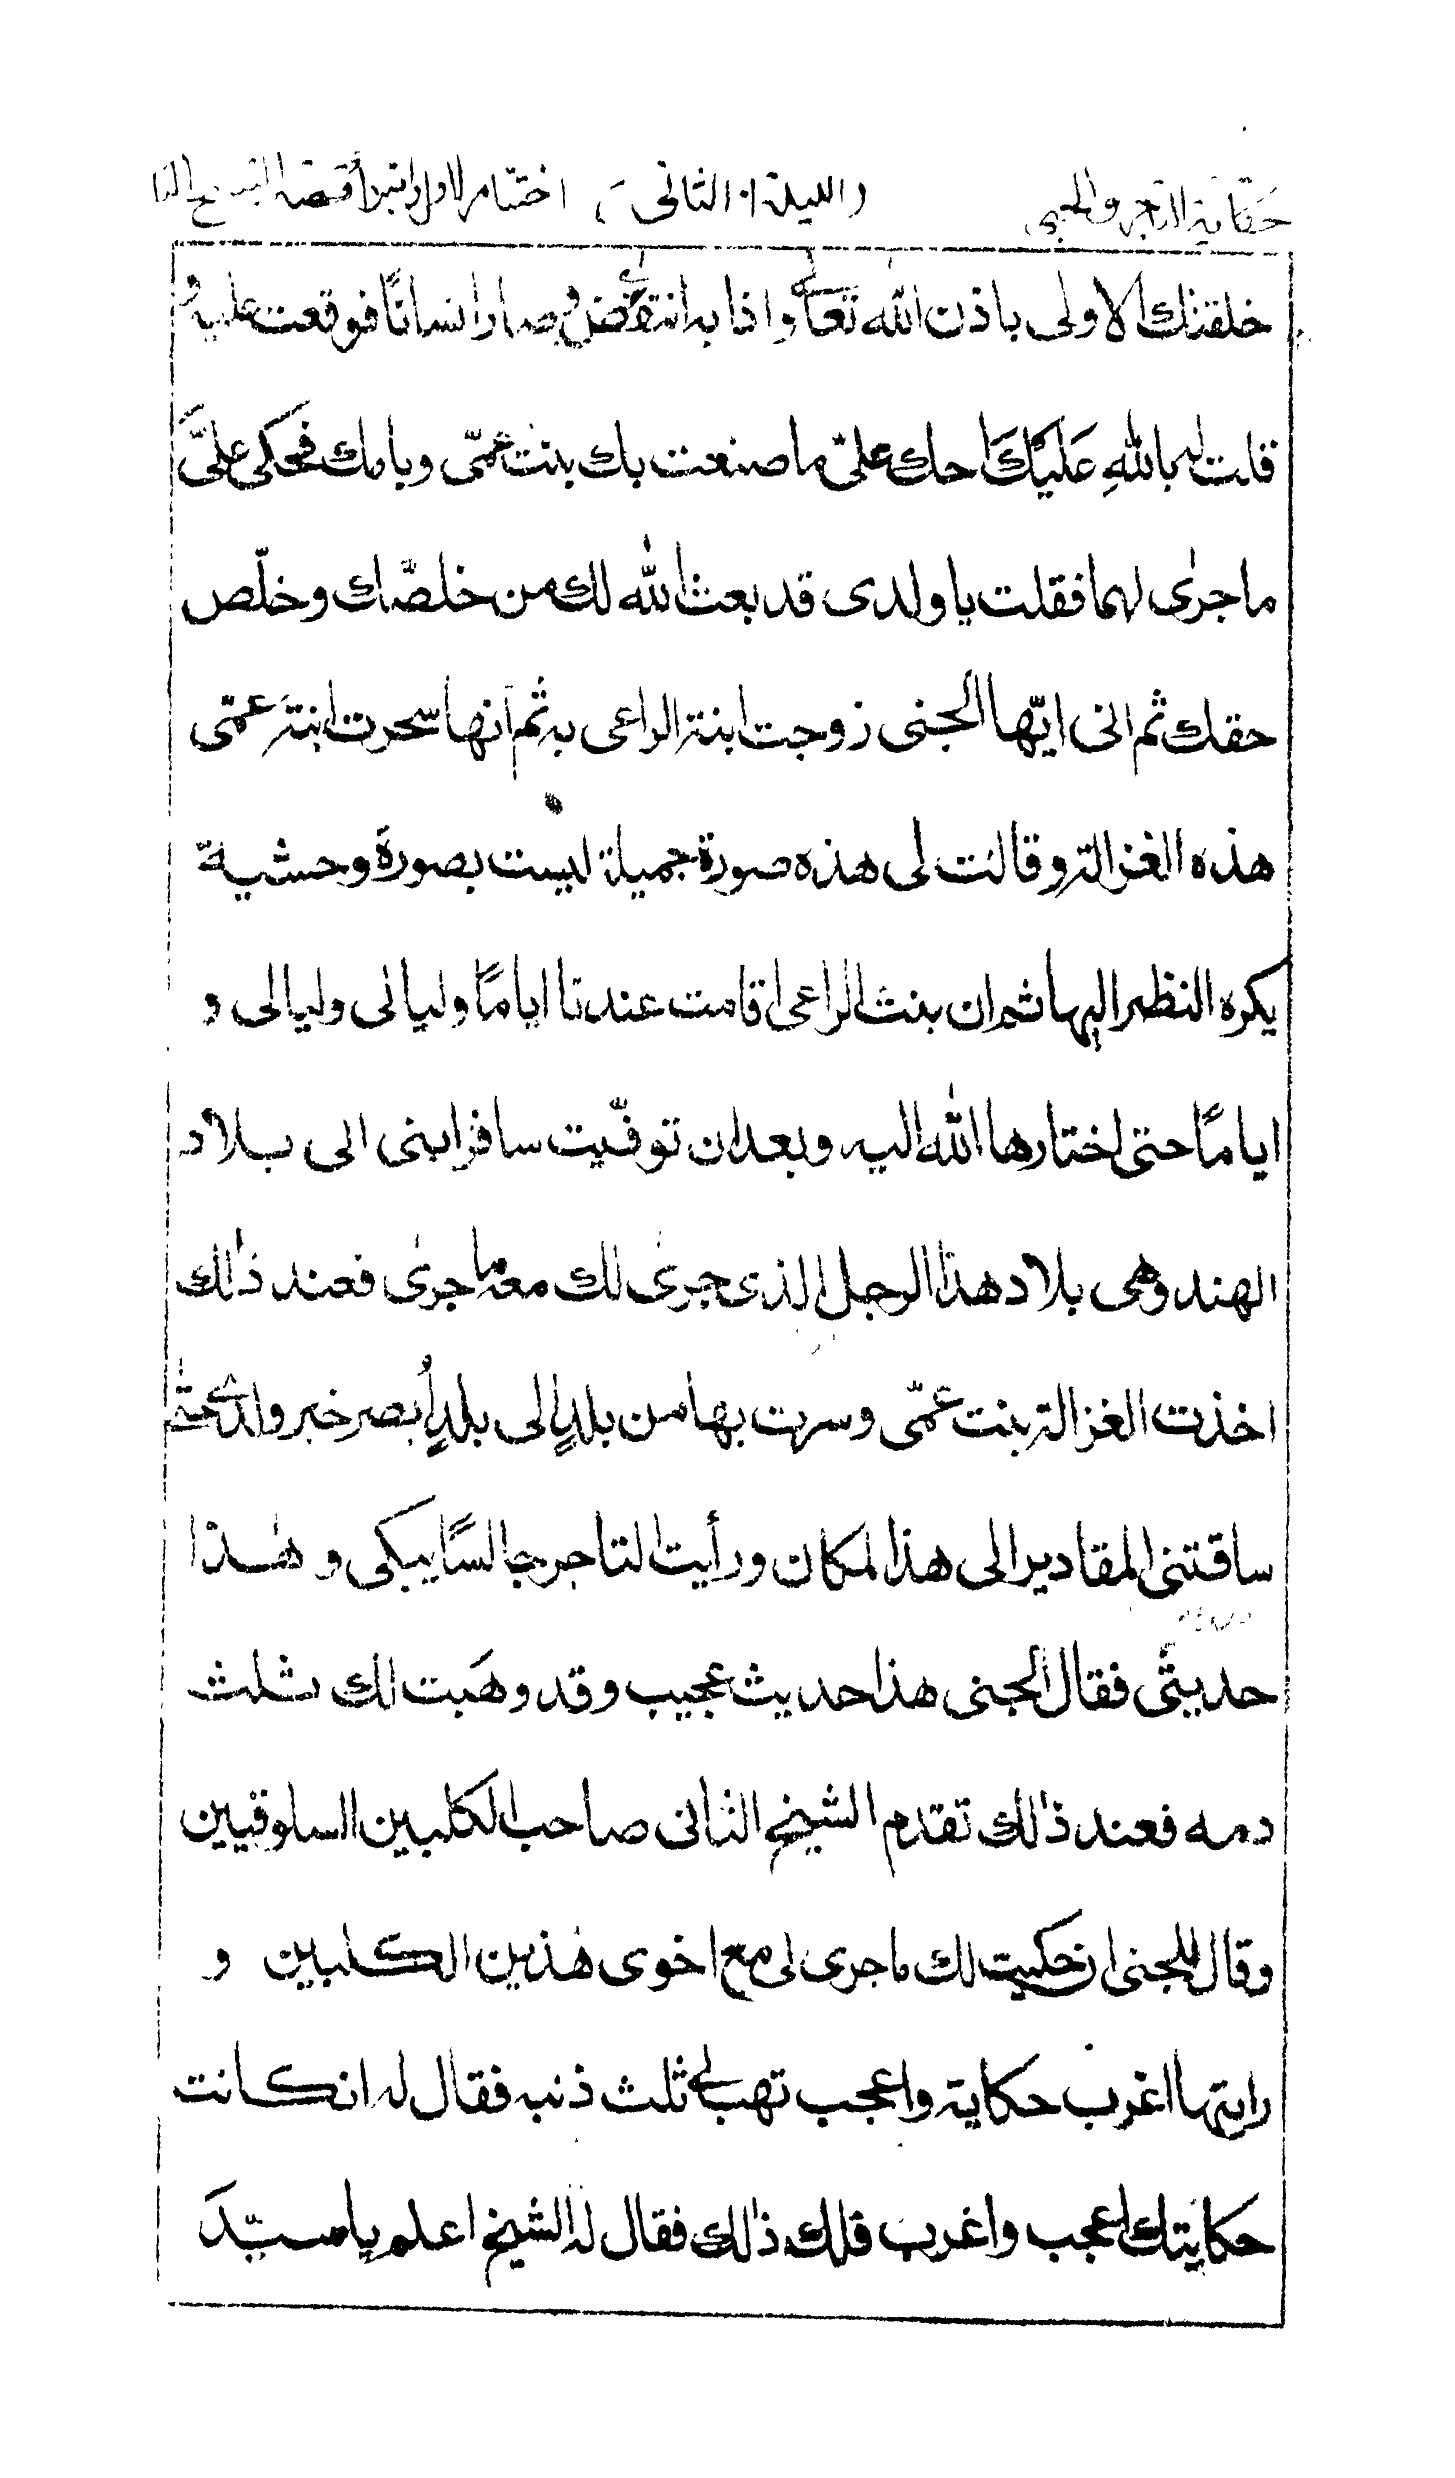 حكاية التاجر والجني (الليلة ١٠ الثاني) اختتام الاول وابتدأ قصة الشيخ الثا
خلقتك الاولى باذن الله تعالى واذا به انتفض وصار انسانًا فوقعت عليه و
قلت له بالله عليك احك عليّ ما صنعت بك بنت عمّى وبامك فحكى علىَّ
ما جرىٰ لهما فقلت يا ولدى قد بعث الله لك من خلصّك وخلّص
حقك ثم انى ايّها الجنى زوجت ابنة الراعى به ثم انها سحرت ابنة عمّى
هذه الغزالة وقالت لى هذه صورة جميلة ليست بصورة وحشية
يكره النظر اليها ثم ان بنت الراعى اقامت عندنا ايامًا وليالى وليالى و
ايامًا حتى اختارها الله اليه وبعد ان توفّيت سافر ابنى الى بلاد
الهند وهى بلاد هذا الرجل الذى جرىٰ لك معه ما جرىٰ فعند ذٰلك
اخذت الغزالة بنت عمّى وسرت بها من بلدٍ الى بلدٍ أبصر خبر ولدى حتى
ساقتنى المقادير الى هذا المكان ورأيت التاجر جالسًا يبكى و هٰذا
حديثى فقال الجنى هذا حديث عجيب وقد وهَبت لك ثلث
دمه فعند ذٰلك تقدم الشيخ الثانى صاحب الكلبين السلوقيين
وقال للجنى ان حكيت لك ما جرى لى مع اخوى هٰذين الكلبين و
رايتها اغرب حكاية واعجب تهب لى ثلث ذنبه فقال له ان كانت
حكايتك اعجب واغرب فلك ذٰلك فقال له الشيخ اعلم يا سيّد